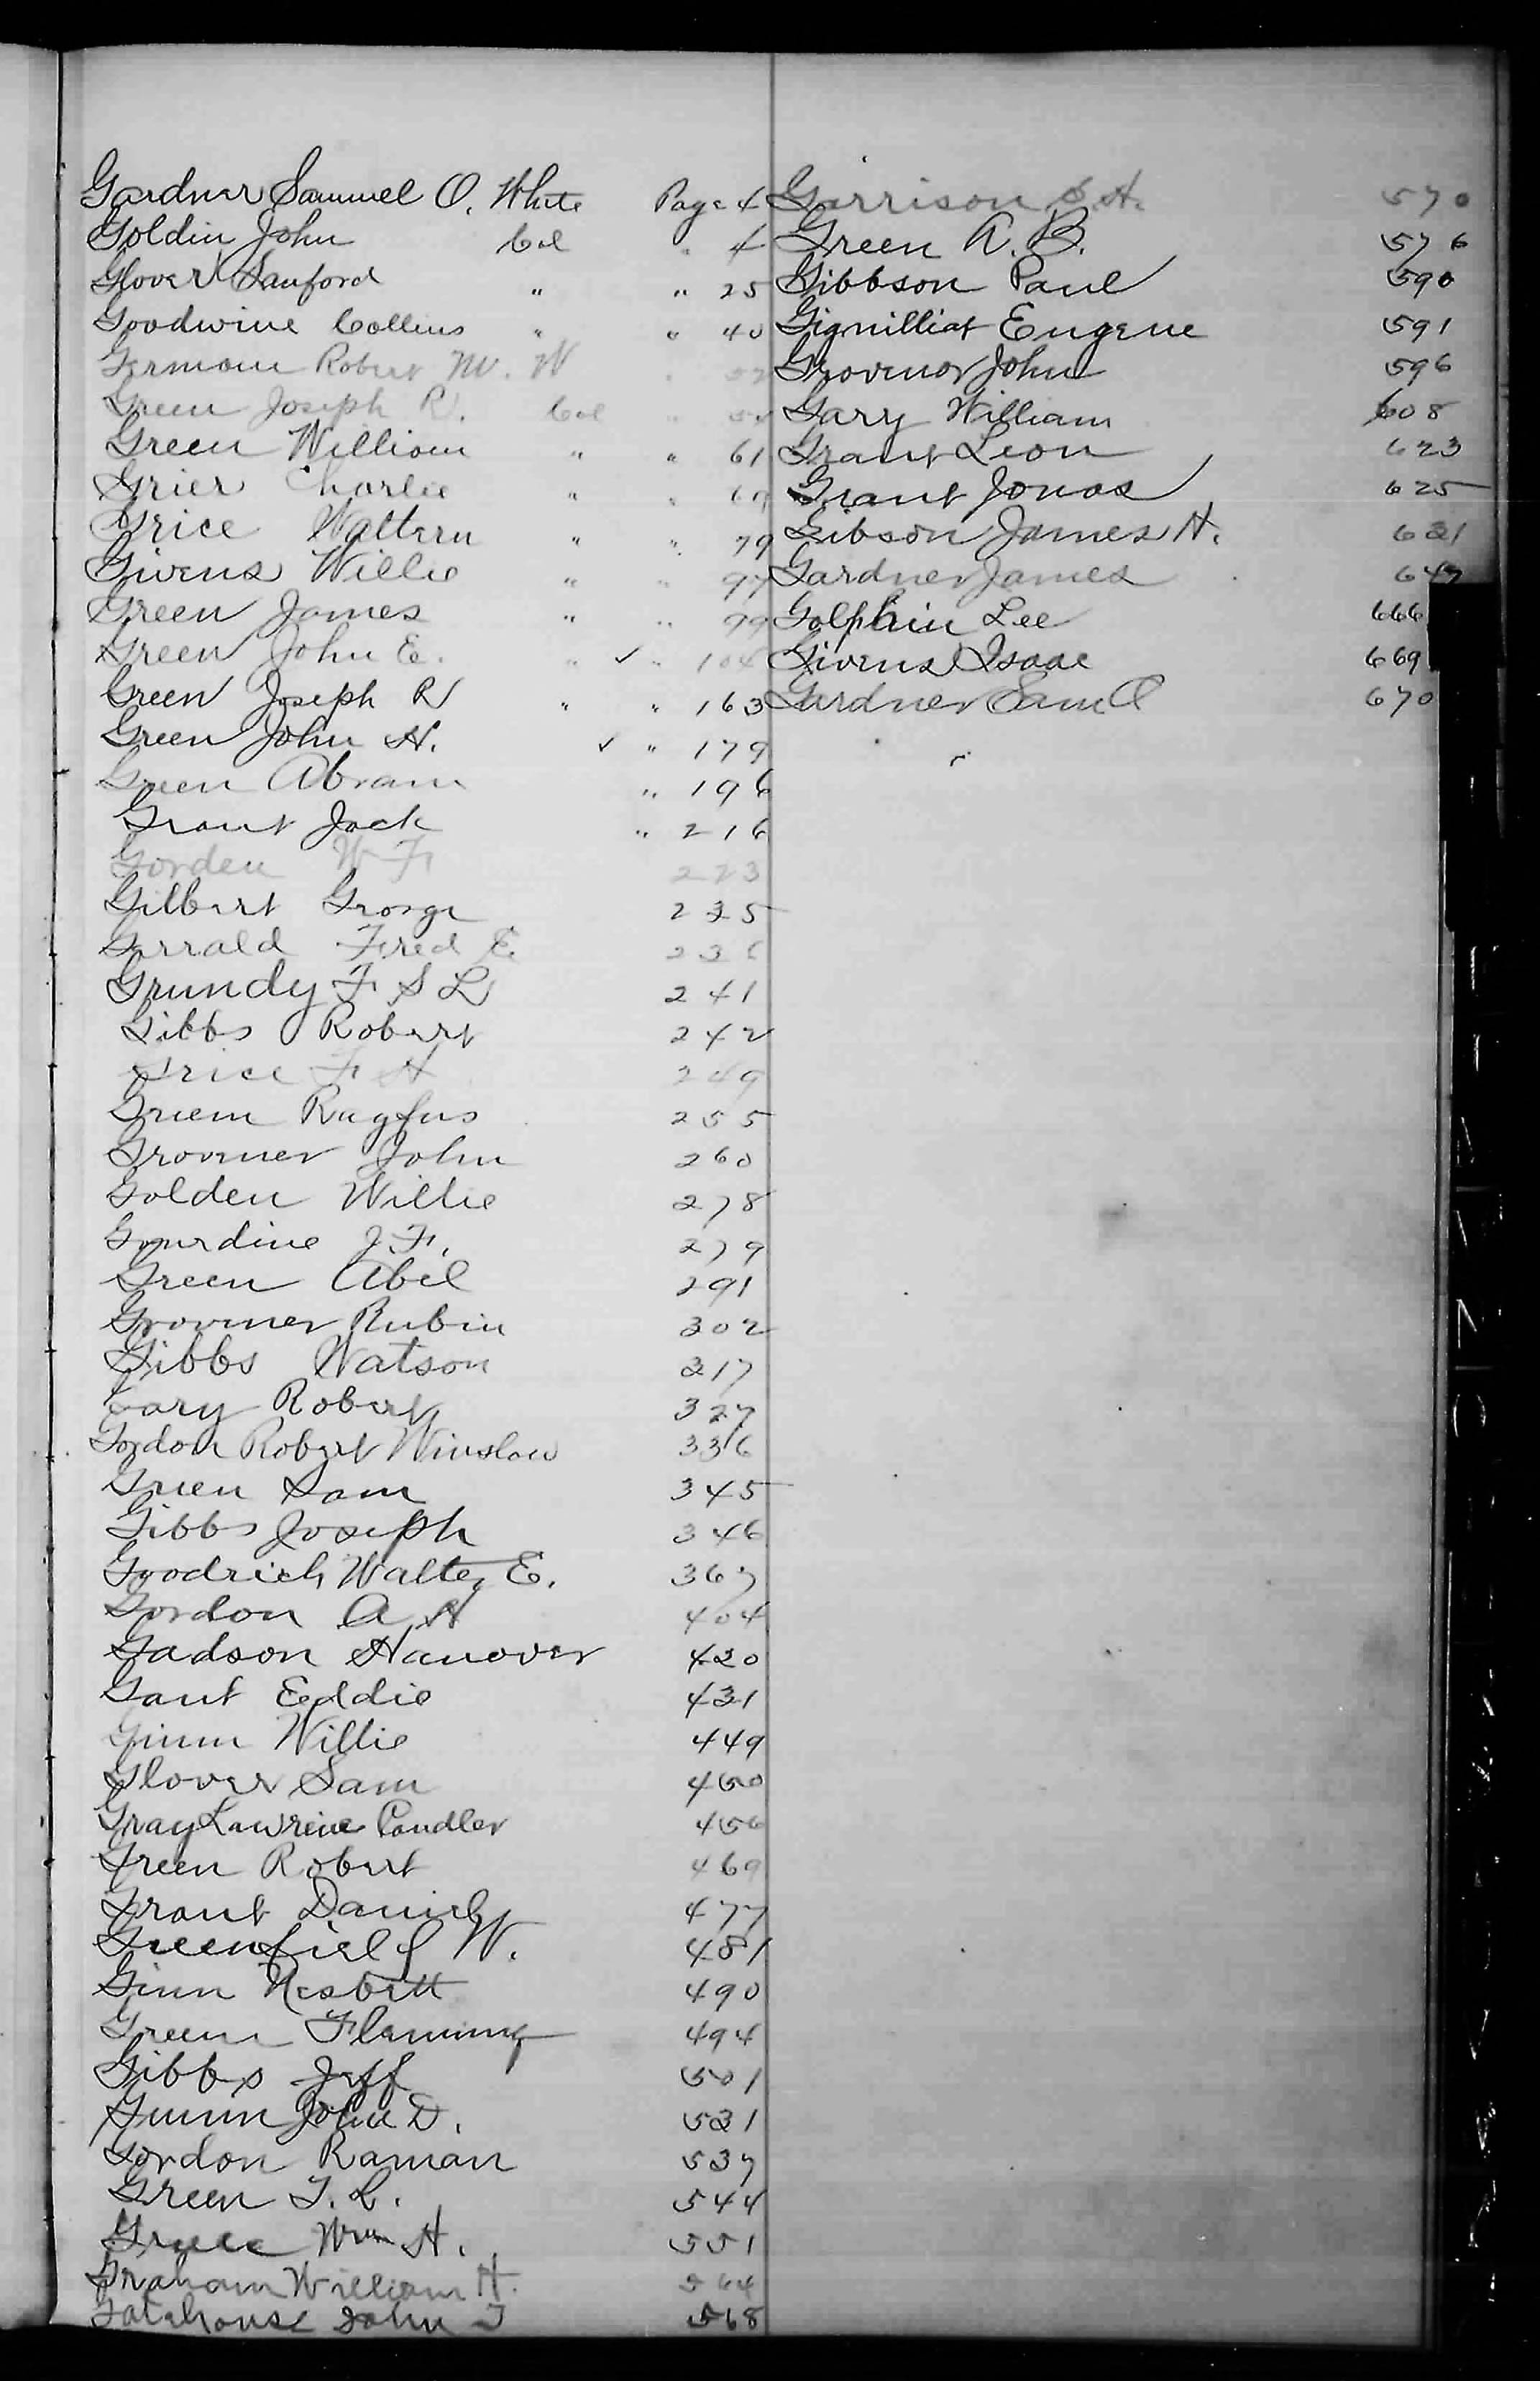 Gardner Samuel O. White Page 4
Goldin John Col " 4
Glover Sanford " " 25
Goodwine Collins " " 40
Germain Robert M. W "
Green Joseph R. Col "
Green William " " 61
Grier Charlie " "
Grice Waltern " " 79
Givens Willie " " 97
Green James " " 99
Green John E. " ✓ " 104
Green Joseph R " " 163
Green John H. ✓ " 179
Green Abram " 196
Grant Jack " 216
Gorden W F 223
Gilbert George 235
Garrald Fred E. 236
Grundy F S L 241
Gibbs Robert 242
Grice F H 249
Green Rugfus 255
Grovner John 260
Golden Willie 278
Gourdine J. F. 279
Green Abel 291
Grovner Rubin 302
Gibbs Watson 317
Gary Robert 327
Gordon Robert Winslow 336
Green Sam 345
Gibbs Joseph 346
Goodrich Walter E. 367
Gordon A H 404
Gadson Hanover 420
Gant Eddie 431
Ginn Willie 449
Glover Sam 450
Gray Lawrence Candler 456
Green Robert 469
Grant Daniel 477
Greenfield W. 481
Ginn Nesbitt 490
Green Fleming 494
Gibbs Jeff 501
Gunn John D. 531
Gordon Raman 537
Green T. L. 544
Grace Wm H. 551
Graham William H. 564
Gatehouse John T 568
Garrison S. H. 570
Green A. B. 576
Gibbson Paul 590
Gignilliat Eugene 591
Grovenor John 596
Gary William 608
Grant Leon 623
Grant Jonas 625
Gibson James H. 631
Gardner James 647
Golphin Lee 666
Givens Isaac 669
Gardner Saml 670